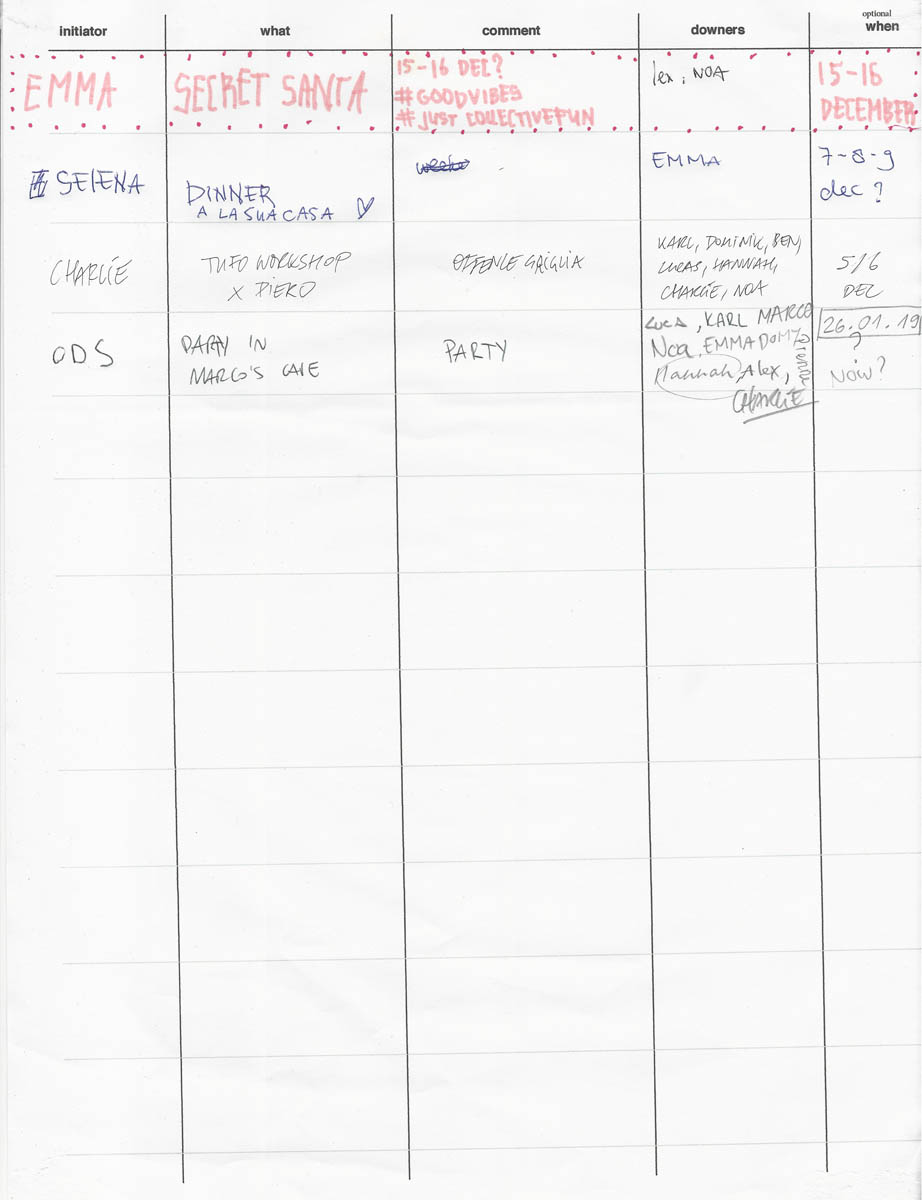 initiator what comment downers optional when
EMMA SECRET SANTA 15-16 DEC? lex, NOA 15-16
#GOODVIBES DECEMBER
#JUST COLLECTIVEFUN
SELENA DINNER EMMA 7-8-9
A LA SUA CASA dec?
CHARLIE TUFO WORKSHOP OFFENLE GRIGLIA KARL, DOMINIK, BEN, 5/6
X PIERO LUCAS, HANNAH, DEC
CHARLIE, NOA
ODS PARTY IN PARTY Luca, KARL MARCO 26.01.19
MARCO'S CAVE Noa, EMMA DOM ?
Hannah, Alex, NOW?
CHARLIE